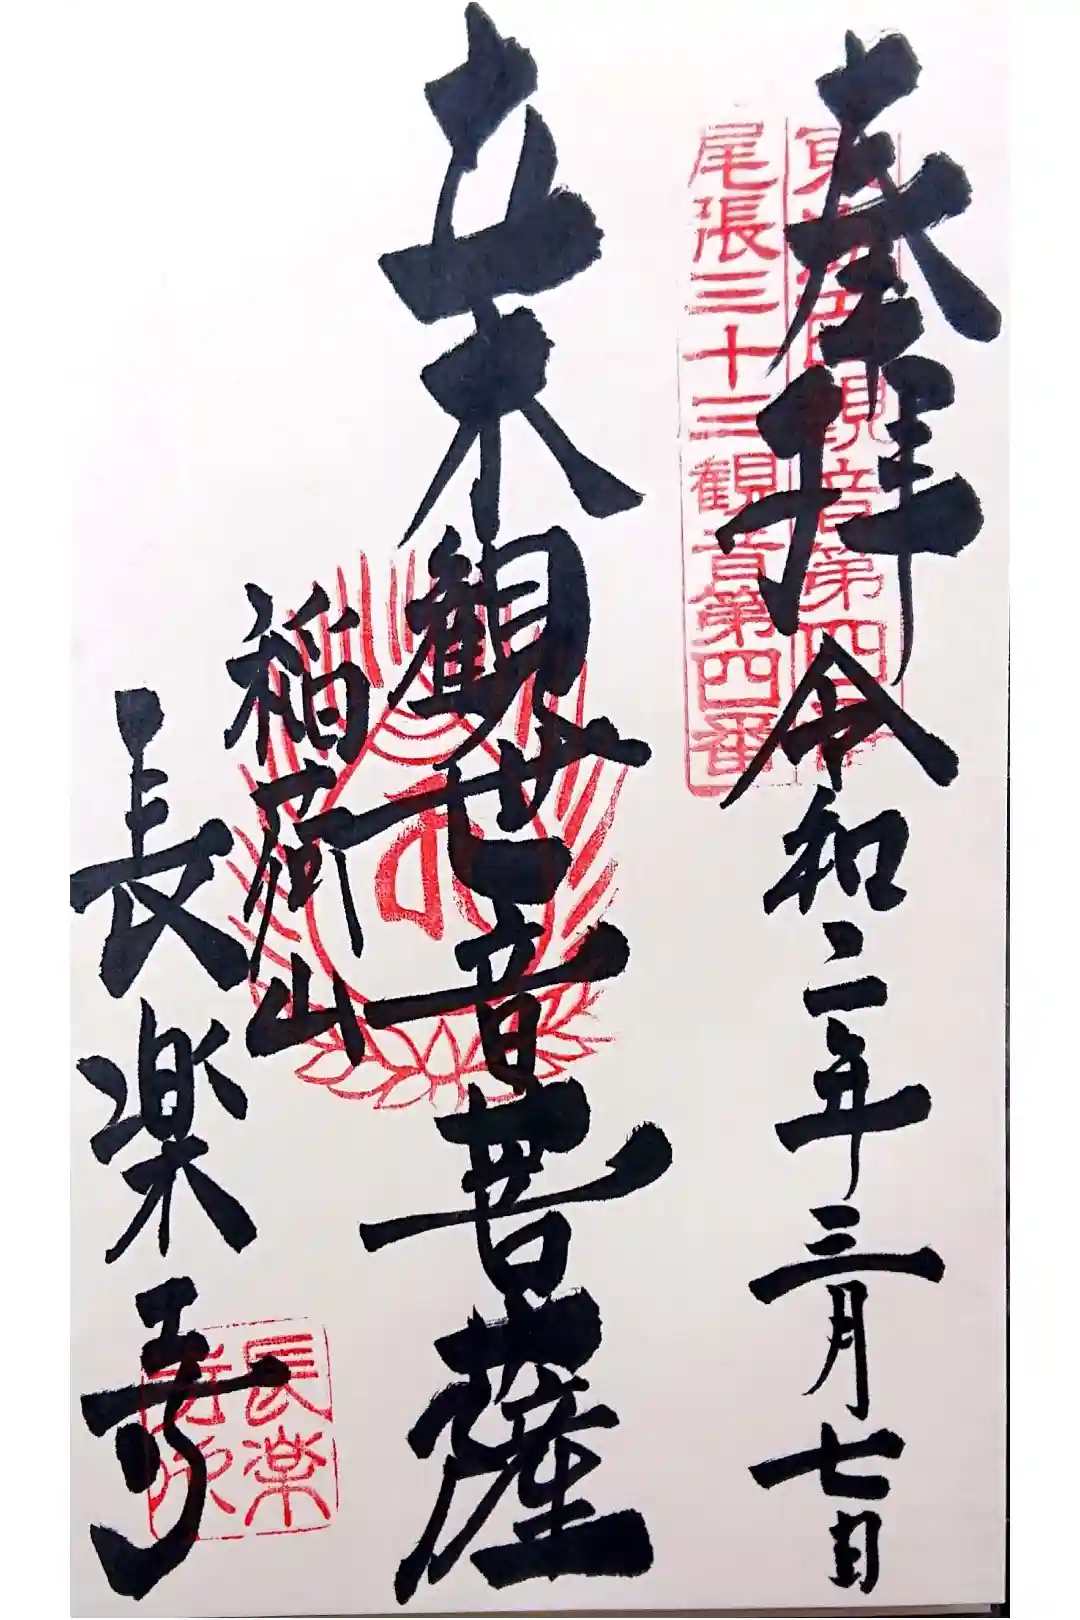 奉拝 令和二年三月七日
東海百観音第四番
尾張三十三観音第四番
観世音菩薩
稲荷山
長楽寺
長楽
寺印